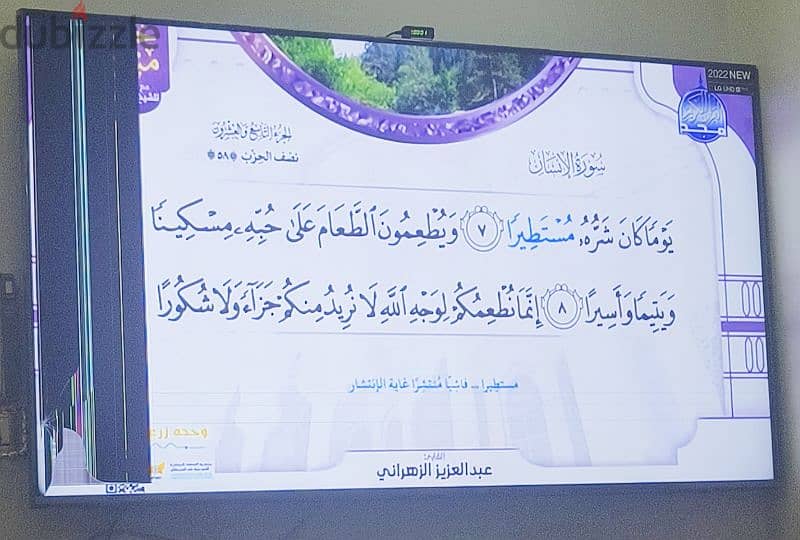 dubizzle
2022 NEW
LG UHD
الجزء التاسع والعشرون
نصف الحزب ٥٨
سورة الإنسان
يَوْمًا كَانَ شَرُّهُۥ مُسْتَطِيرًا ٧ وَيُطْعِمُونَ ٱلطَّعَامَ عَلَىٰ حُبِّهِۦ مِسْكِينًا
وَيَتِيمًا وَأَسِيرًا ٨ إِنَّمَا نُطْعِمُكُمْ لِوَجْهِ ٱللَّهِ لَا نُرِيدُ مِنكُمْ جَزَآءً وَلَا شُكُورًا
مستطيرا ... فاشيًا مُنتشرًا غاية الإنتشار
القارئ:
عبدالعزيز الزهراني